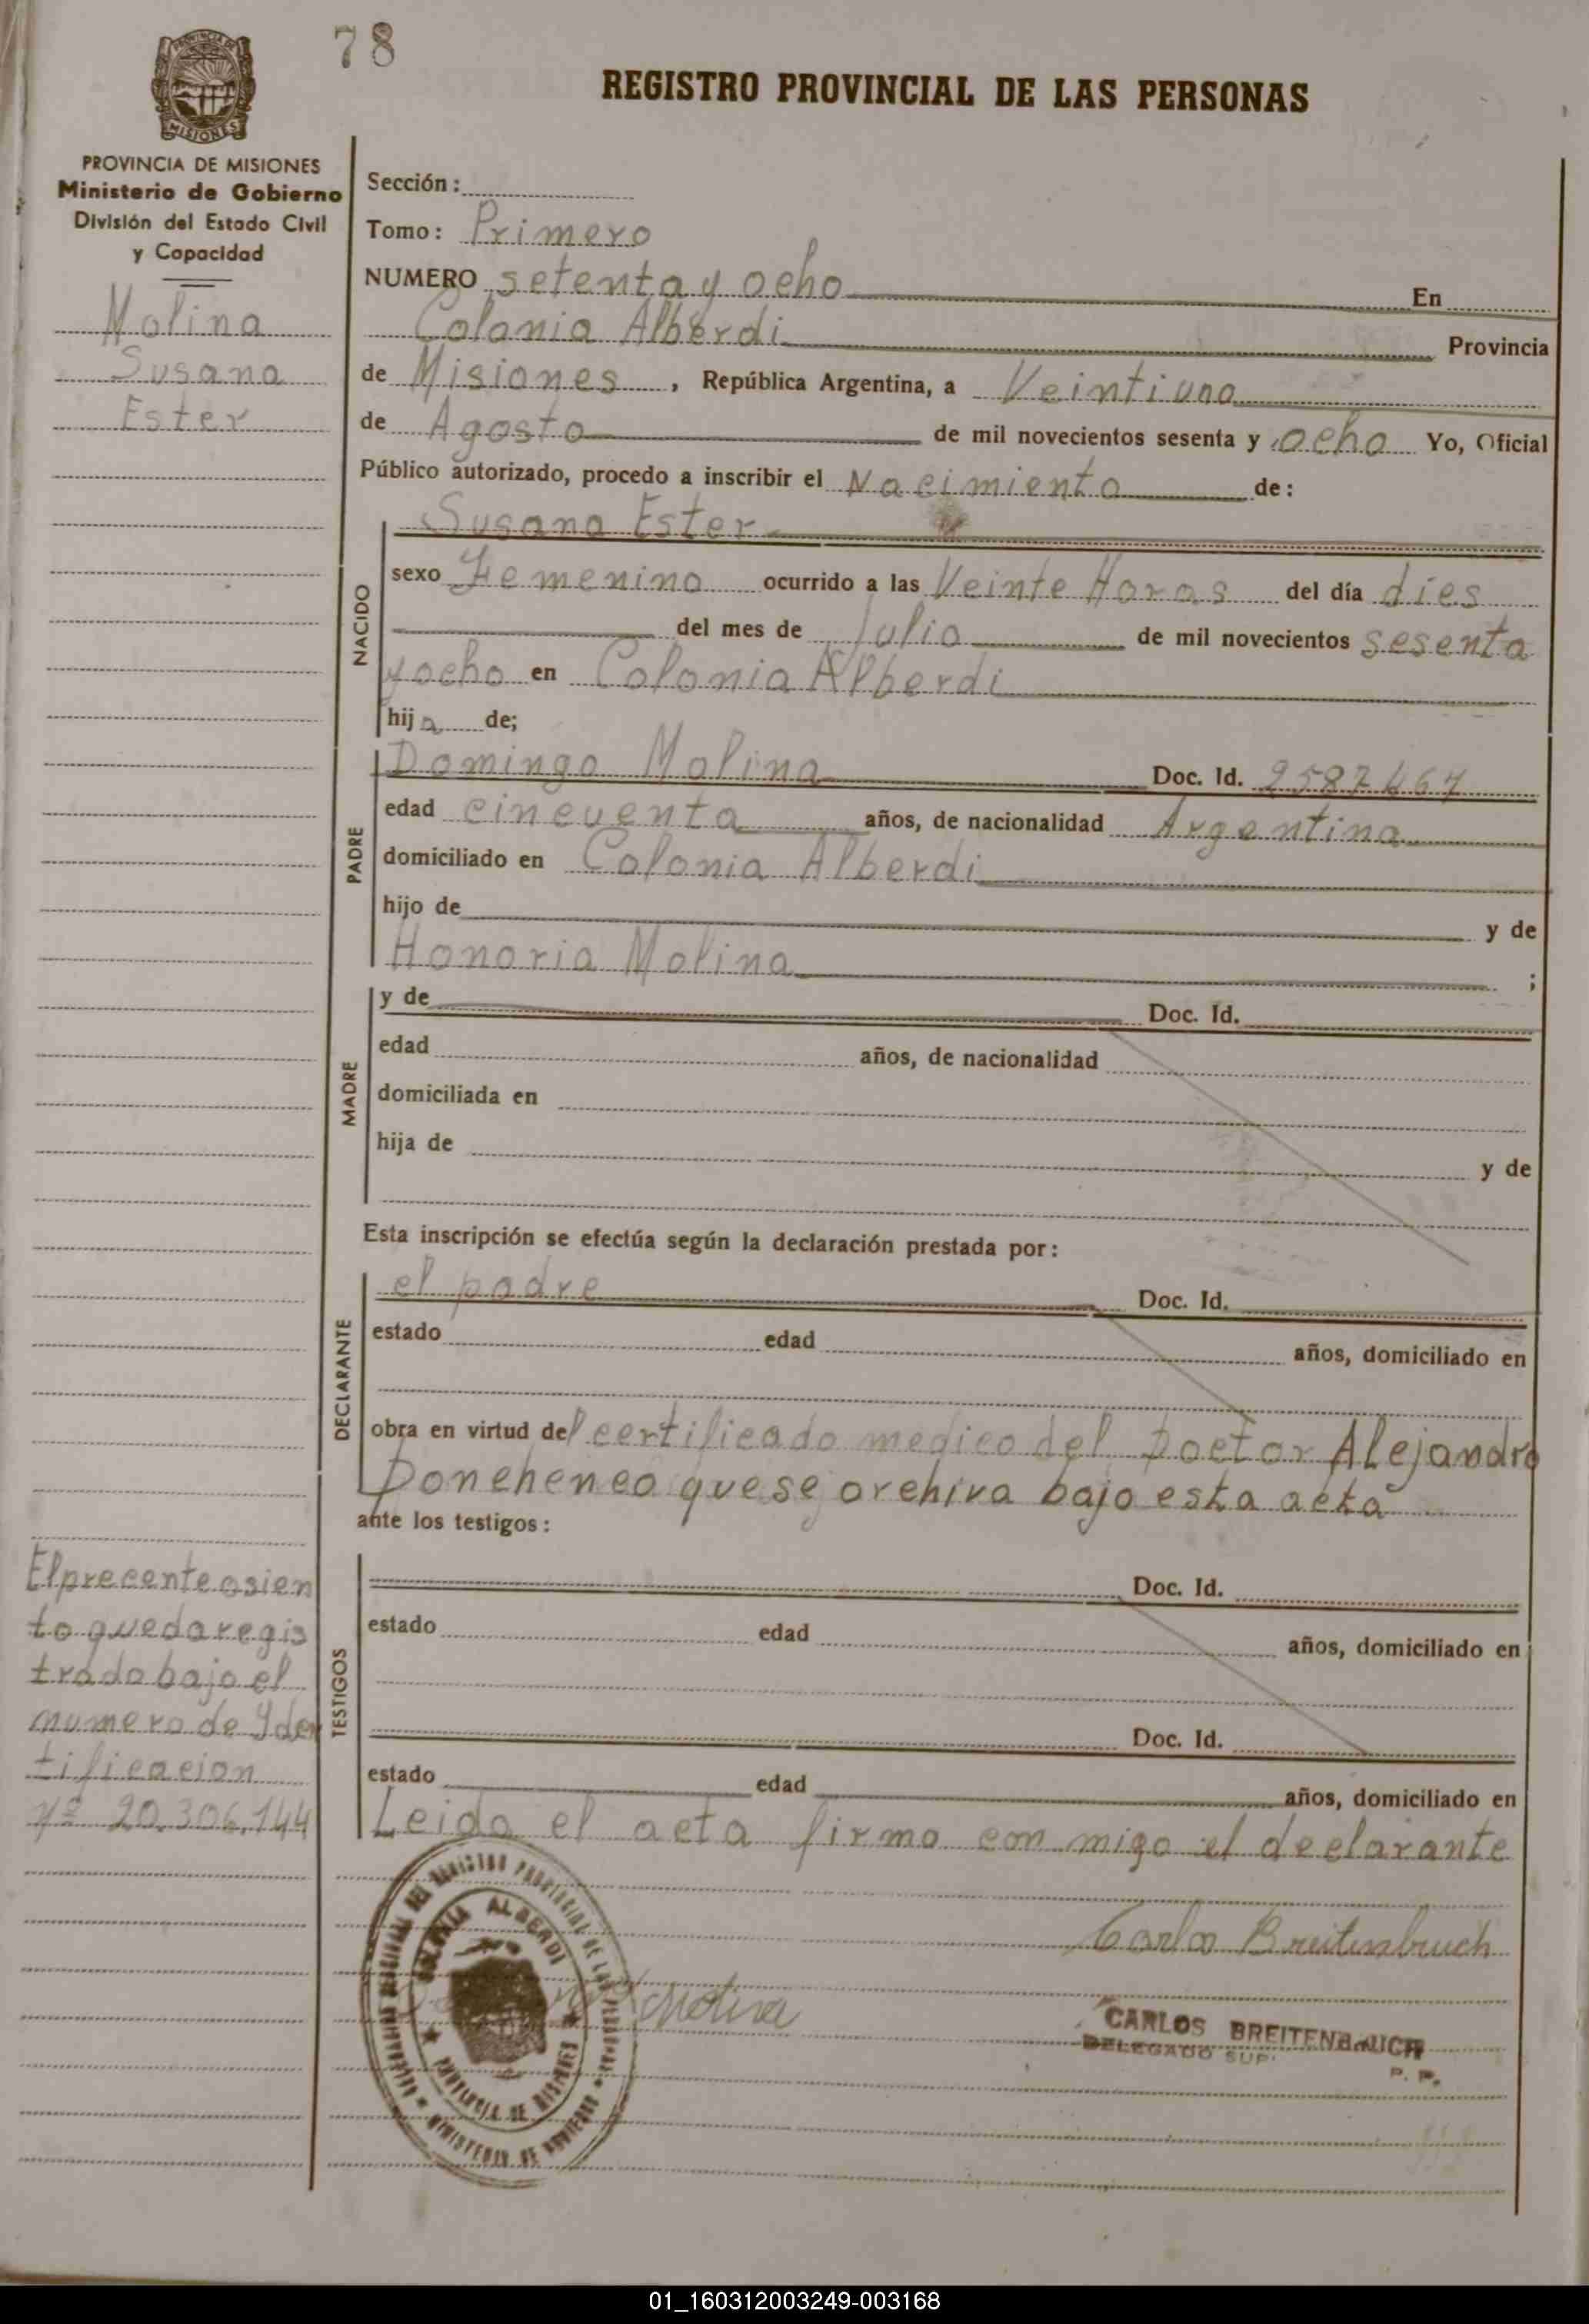 78
REGISTRO PROVINCIAL DE LAS PERSONAS
PROVINCIA DE MISIONES
Ministerio de Gobierno
División del Estado Civil
y Capacidad
Molina
Susana
Ester
Sección:
Tomo: Primero
NUMERO setenta y ocho En
Colonia Alberdi Provincia
de Misiones, República Argentina, a Veintiuno
de Agosto de mil novecientos sesenta y ocho Yo, Oficial
Público autorizado, procedo a inscribir el Nacimiento de:
NACIDO
Susana Ester
sexo Femenino ocurrido a las Veinte Horas del día dies
del mes de Julio de mil novecientos sesenta
y ocho en Colonia Alberdi
hija de;
PADRE
Domingo Molina Doc. Id. 2587467
edad cincuenta años, de nacionalidad Argentina
domiciliado en Colonia Alberdi
hijo de y de
Honoria Molina ;
MADRE
y de Doc. Id.
edad años, de nacionalidad
domiciliada en
hija de y de
Esta inscripción se efectúa según la declaración prestada por:
DECLARANTE
el padre Doc. Id.
estado edad años, domiciliado en
obra en virtud del certificado medico del Doctor Alejandro
que se archiva bajo esta acta
ante los testigos:
TESTIGOS
Doc. Id.
estado edad años, domiciliado en
Doc. Id.
estado edad años, domiciliado en
Leida el acta firmo con migo el declarante
El precente asien
to queda regis
trado bajo el
numero de Yden
tificacion
Nº 20.306.144
Carlos Breitenbruch
Molina
CARLOS BREITENBRUCH
DELEGADO SUP.
P. P.
COLONIA ALBERDI
PROVINCIA DE MISIONES
MINISTERIO DE GOBIERNO
01_160312003249-003168